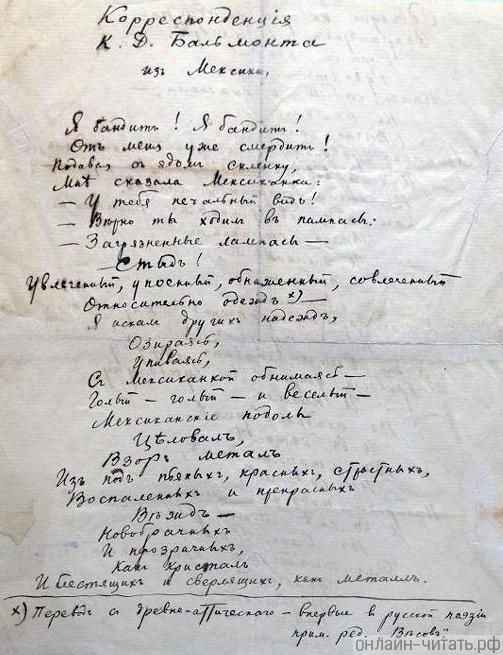 Корреспонденцiя
К. Д. Бальмонта
изъ Мексики.
Я бандитъ! Я бандитъ!
Отъ меня уже смердитъ!
Подавая съ ядомъ склянку,
Мнѣ сказала Мексиканка:
— У тебя печальный видъ!
— Вѣрно ты ходилъ въ пампасы:
— Загрязненные лампасы —
— Стыдъ!
Увлеченный, упоенный, обнаженный, совлеченный
Относительно одеждъ x) —
Я искалъ другихъ надеждъ,
Озираясь,
Упиваясь,
Съ Мексиканкой обнимаясь —
Голый — голый — и веселый —
Мексиканскiе подолы
Цѣловалъ,
Взоръ металъ
Изъ подъ пьяныхъ, красныхъ, страстныхъ,
Воспаленныхъ и прекрасныхъ
Вѣждъ —
Новобрачныхъ
И прозрачныхъ,
Какъ кристалъ
И блестящихъ и сверлящихъ, какъ металлъ.
x) Переводъ съ древне-аттическаго — впервые в русской поэзiи
прим. ред. "Вѣсовъ"
онлайн-читать.рф